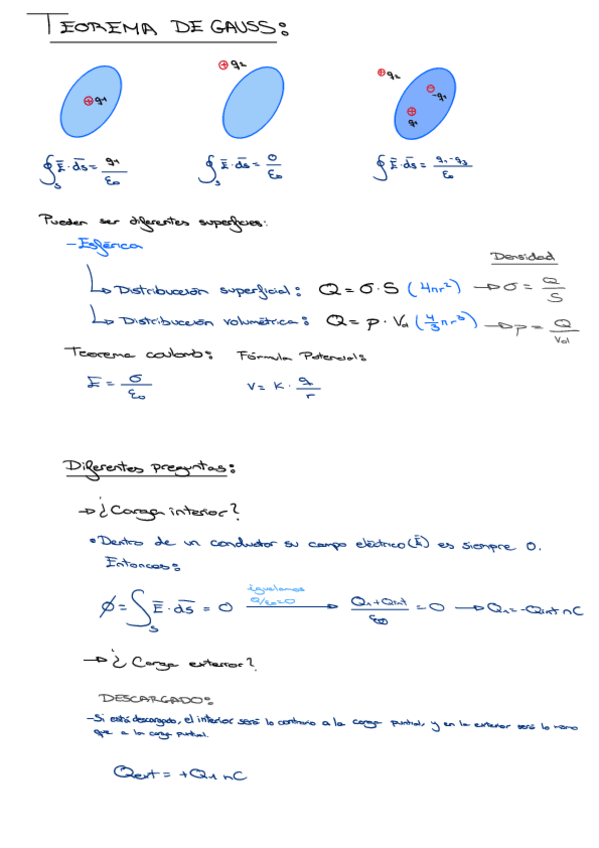 TEOREMA DE GAUSS:
⊕ q1
⊕ q2
⊕ q2
⊖ -q3
⊕ q1
∮s Ē·ds̄ = q1/ε0
∮s Ē·ds̄ = 0/ε0
∮s Ē·ds̄ = q1-q3/ε0
Pueden ser diferentes superficies:
-Esférica
Densidad
↳ Distribución superficial: Q = σ·S (4πr²) → σ = Q/S
↳ Distribución volumétrica: Q = ρ·Vol (4/3 πr³) → ρ = Q/Vol
Teorema coulomb: Fórmula Potencial:
E = σ/ε0 V = K·q/r
Diferentes preguntas:
→ ¿Carga interior?
• Dentro de un conductor su campo eléctrico (Ē) es siempre 0.
Entonces:
igualamos
Q/ε0=0
ϕ = ∫s Ē·ds̄ = 0 → Q1+Qint/ε0 = 0 → Q1=-Qint nC
→ ¿Carga exterior?
DESCARGADO:
-Si está descargado, el interior será lo contrario a la carga puntual, y en la exterior será lo mismo
que a la carga puntual.
Qext = +Q1 nC